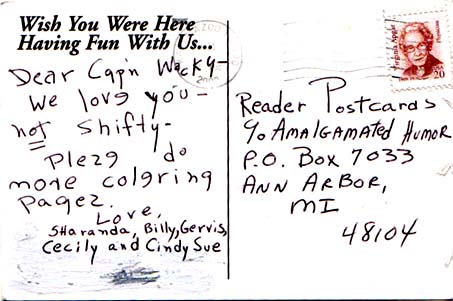 Wish You Were Here
Having Fun With Us...
Dear Cap'n Wacky-
We love you-
not Shifty-
Pleze do
more coloring
pagez.
Love,
Sharanda, Billy, Gervis,
Cecily and Cindy Sue
Virginia Apgar
Physician
20
Reader Postcards
c/o Amalgamated Humor
P.O. Box 7033
Ann Arbor,
MI
48104